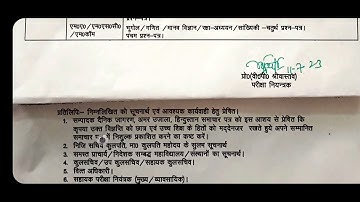 प्रश्न-पत्र।
एम०ए० / एम०एस०सी० / एम०कॉम
भूगोल/गणित / मानव विज्ञान/रक्षा-अध्ययन/सांख्यिकी -चतुर्थ प्रश्न-पत्र।
पंचम प्रश्न-पत्र।
11-7-23
प्रो०(वी०पी० श्रीवास्तव)
परीक्षा नियन्त्रक
प्रतिलिपि:- निम्नलिखित को सूचनार्थ एवं आवश्यक कार्यवाही हेतु प्रेषित।
1. सम्पादक दैनिक जागरण, अमर उजाला, हिन्दुस्तान समाचार पत्र को इस आशय से प्रेषित कि
कृपया उक्त विज्ञप्ति को छात्र एवं उच्च शिक्षा के हितों को मद्देनजर रखते हुये अपने सम्मानित
समाचार पत्र में निशुल्क प्रकाशित करने का कष्ट करें।
2. निजि सचिव कुलपति, मा० कुलपति महोदय के सुलभ सूचनार्थ
3. समस्त प्राचार्य/निदेशक सम्बद्ध महाविद्यालय/संस्थानों का सूचनार्थ।
4. कुलसचिव/उप कुलसचिव/सहायक कुलसचिव।
5. वित्त अधिकारी।
6. सहायक परीक्षा नियंत्रक (मुख्य/व्यावसायिक)।